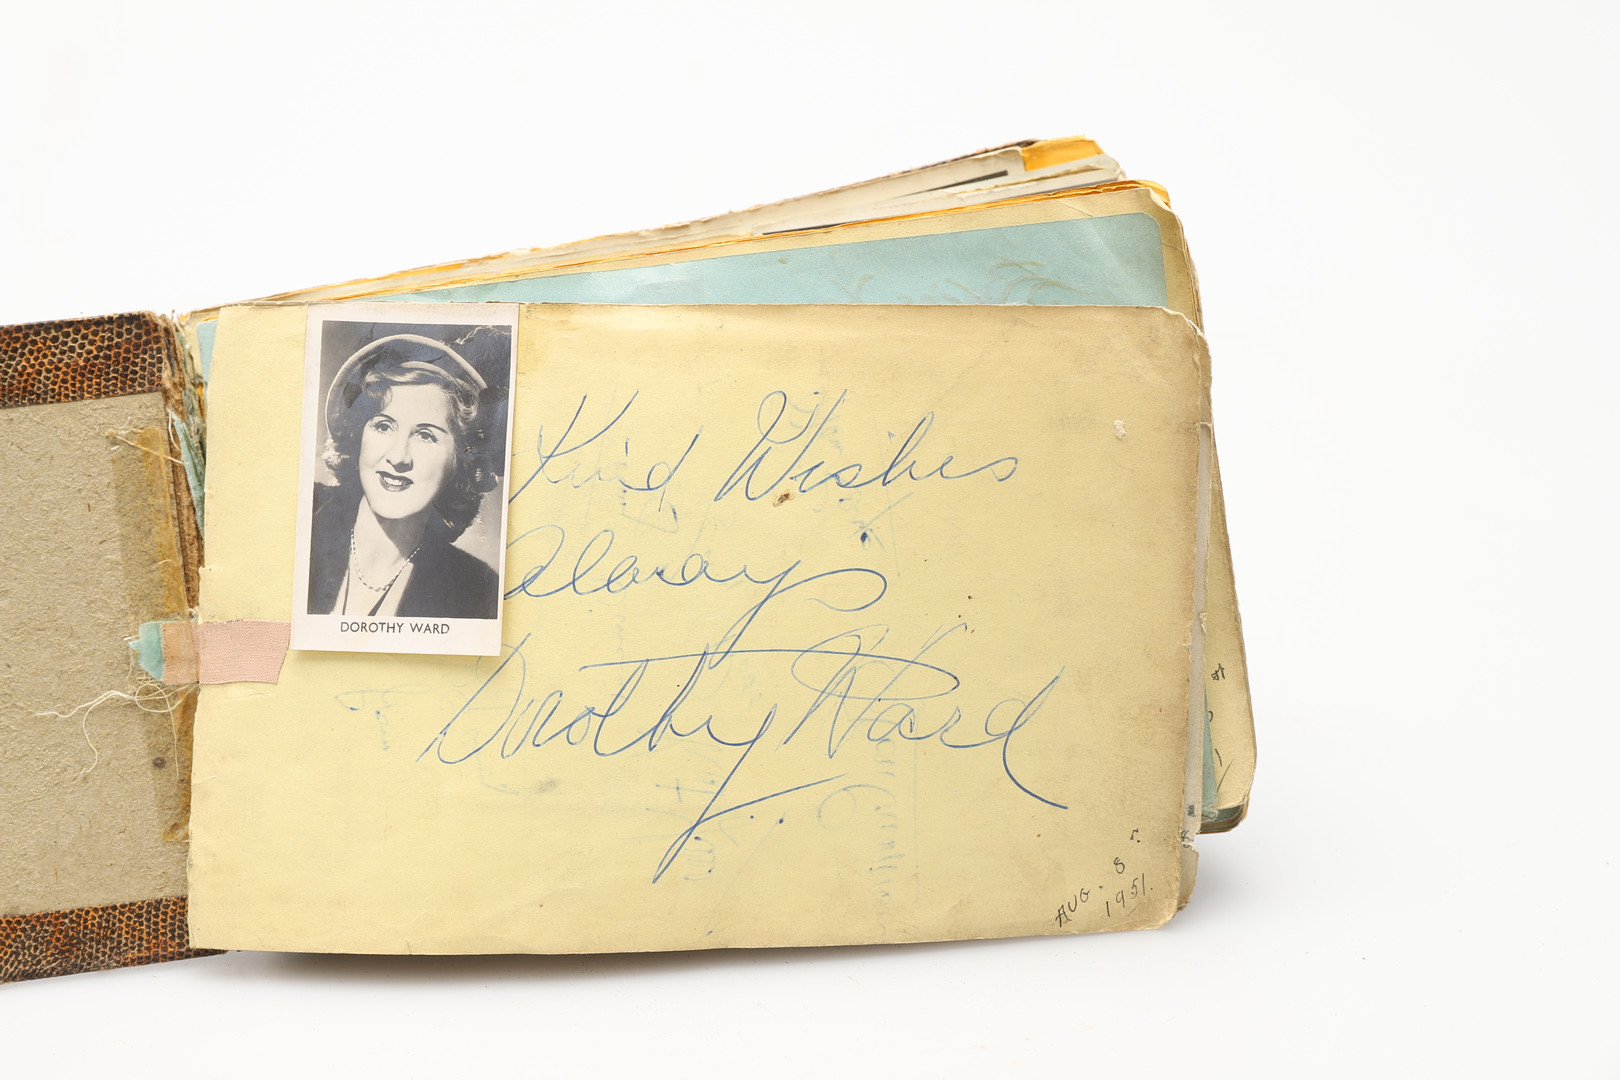 Kind Wishes
Always
DOROTHY WARD
Dorothy Ward
AUG. 8
1951.